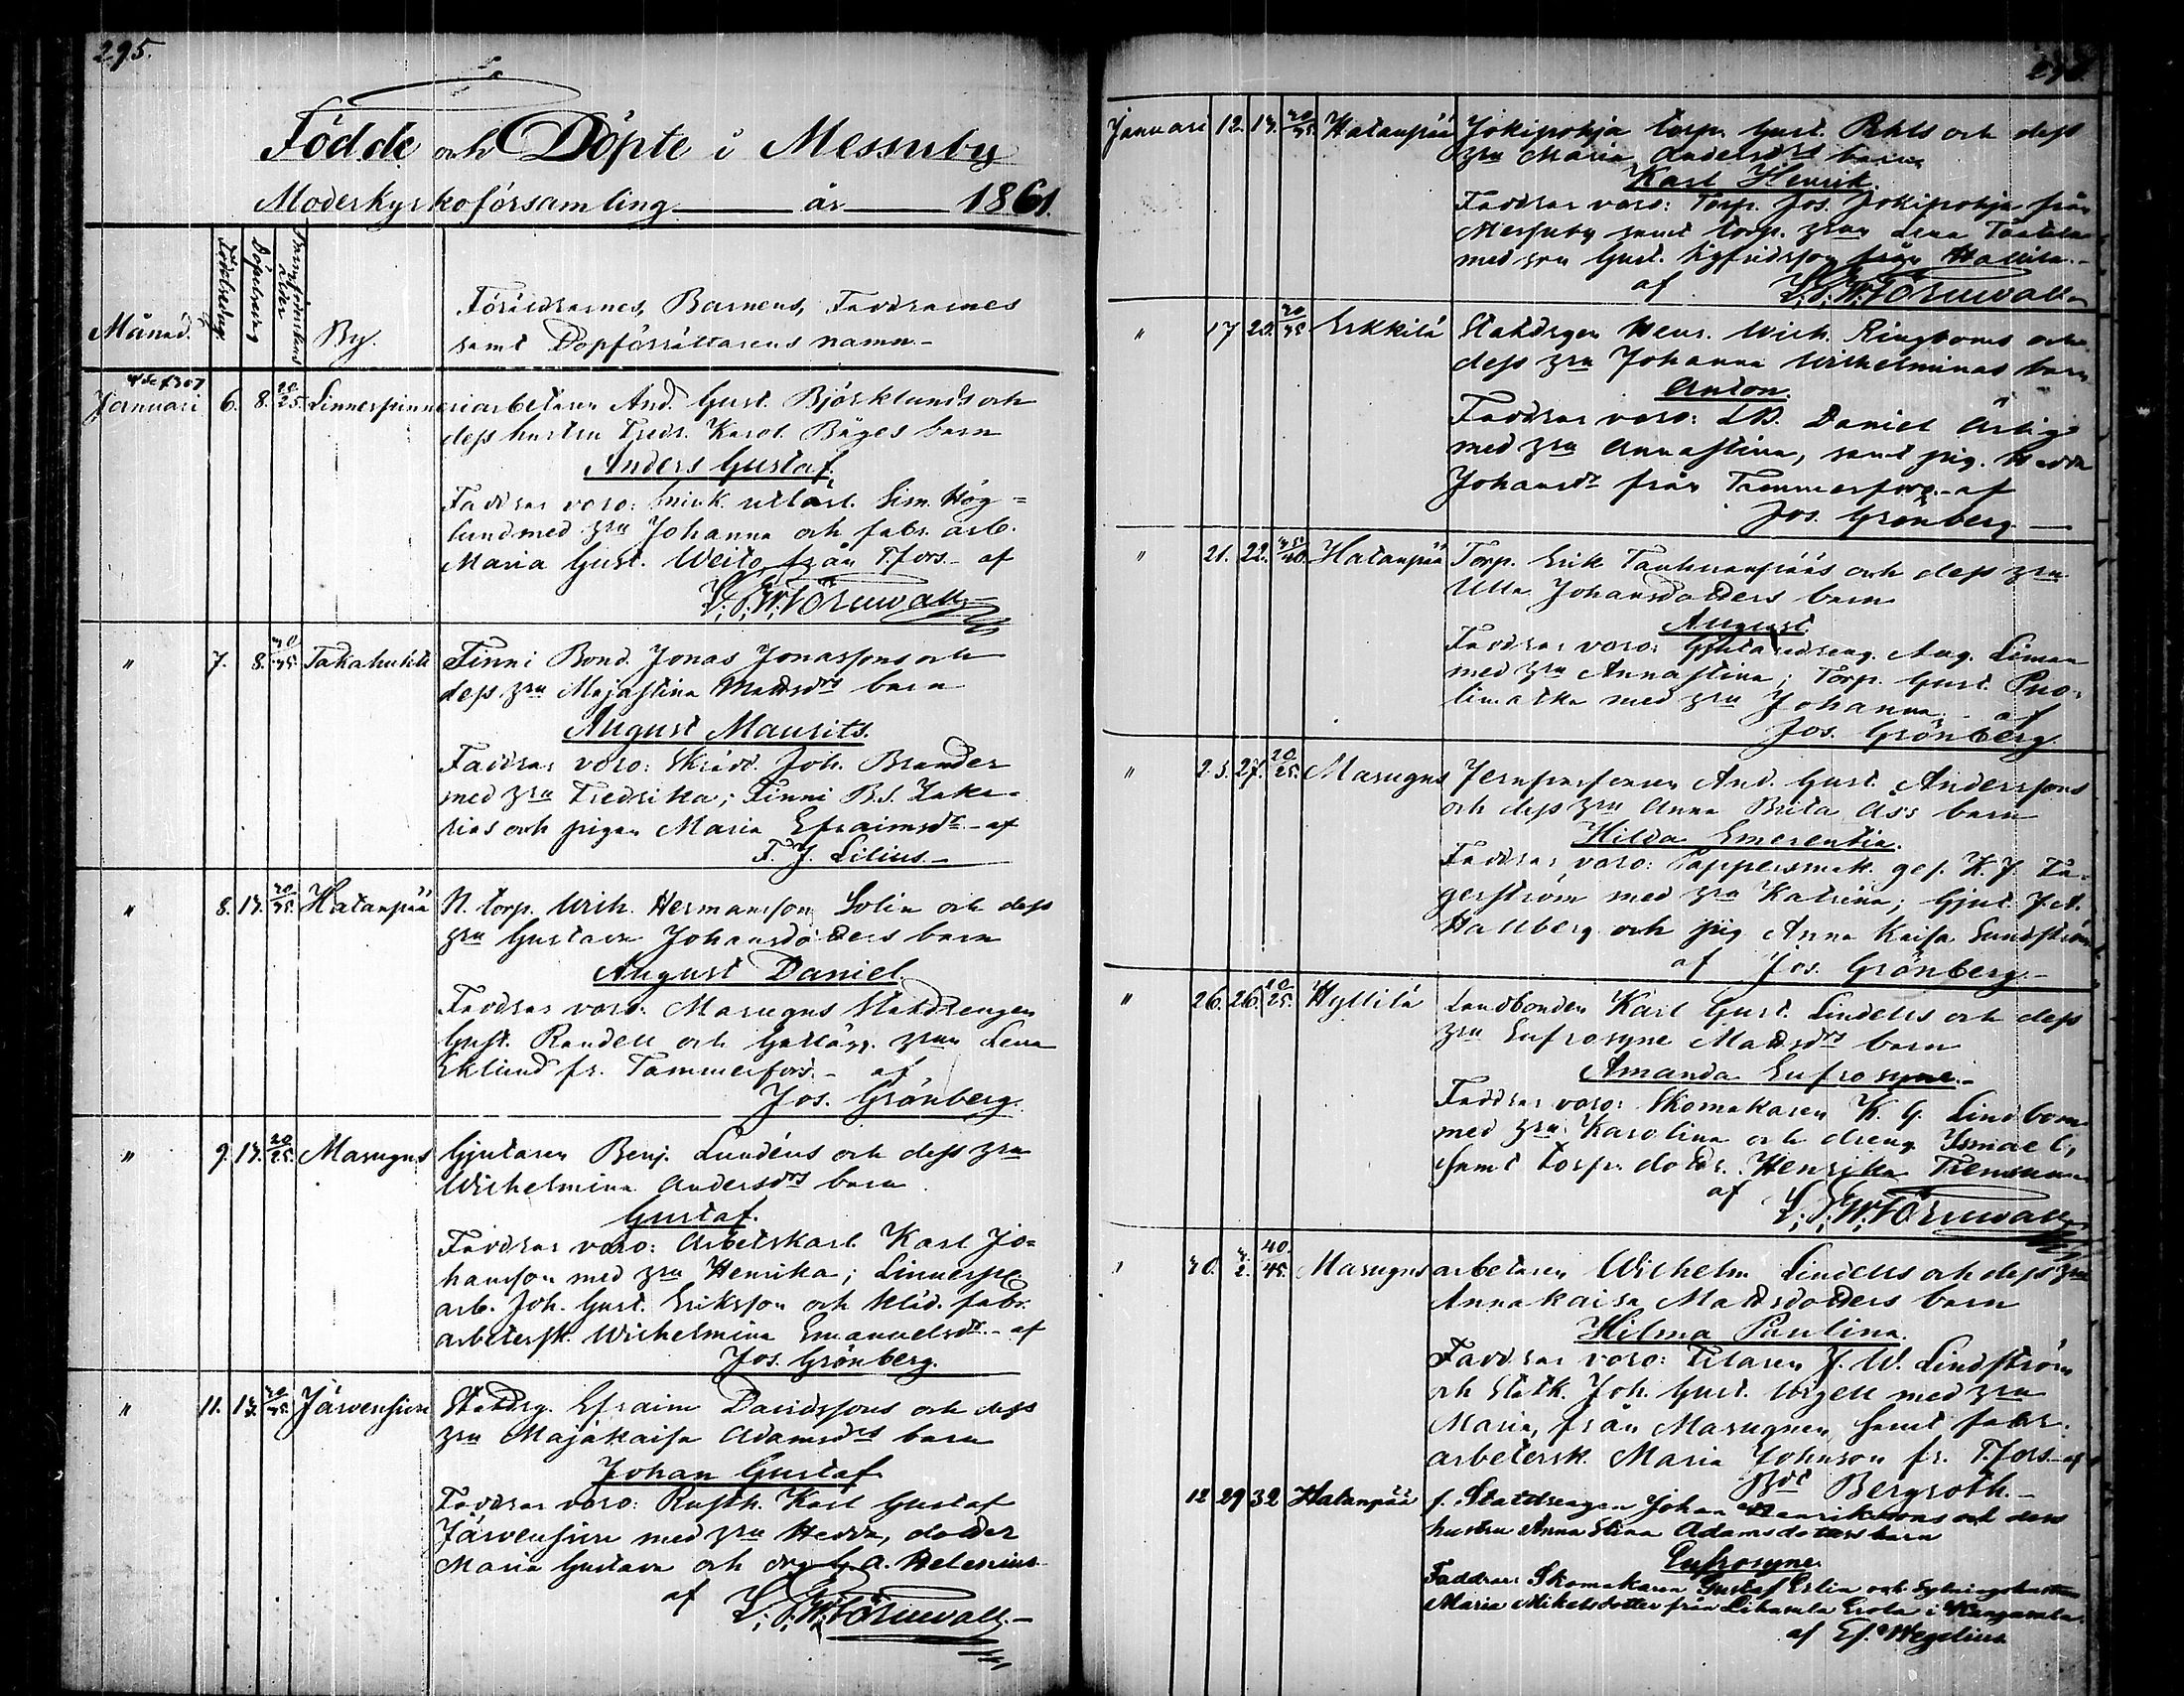 295.
Födde och Döpte i Messuby
Moderkyrkoförsamling år 1861.
Månad. Födelsedag. Döpelsedag Barnaföderskans ålder By. Föräldrarnes, Barnens, Faddrarnes
samt Dopförrättarens namn.
Januari 6. 8. 20/25. Linnespinneriarbetaren And. Gust. Björklunds och
dess hustru Fredr. Karol. Båges barn
Anders Gustaf.
Faddrar voro: Snick. utlärl. Sim. Hög=
lund med hru Johanna och fabr. arb.
Maria Gust. Weito från T.fors. af
L. J. W. Törnwall
" 7. 8. 30/35. Takahuhti Finni Bond. Jonas Jonassons och
dess hru Majastina Mattsdrs barn
August Maurits.
Faddrar voro: Skrädd. Joh. Brander
med hru Fredrika; Finni B.S. Zaka-
rias och pigan Maria Efraimsdr. af
F. J. Lilius.
" 8. 13. 30/35. Hatanpää N. torp. Wilh. Hermansson Solin och dess
hru Gustava Johansdotters barn
August Daniel.
Faddrar voro: Marugns Statdrengen
Gust. Randell och hru Lena
Eklund fr. Tammerfors. af
Jos. Grönberg.
" 9. 13. 20/25. Masugns Gjutaren Benj. Lundéns och dess hru
Wilhelmina Andersdrs barn
Gustaf.
Faddrar voro: Arbetskarl. Karl Jo=
hansson med hru Henrika; Linnesp.
arb. Joh. Gust. Eriksson och Kläd. fabr.
arbetersk. Wilhelmina Emanuelsdr. af
Jos. Grönberg.
" 11. 13. 30/35. Järvensivu Statdrg. Efraim Davidssons och dess
hru Majakaisa Adamsdrs barn
Johan Gustaf
Faddrar voro: Rusth. Karl Gustaf
Järvensivu med hru Hedda, dotter
Maria Gustava och drg G. A. Helenius
af L. J. W. Törnwall
Januari 12. 13. 30/35 Hatanpää Jokipohja torp. Gust. och dess
hru Maria Andersdrs barn
Karl Henrik.
Faddrar voro: Torp. Jos. Jokipohja från
Messuby samt torp. hrun Lena
med son Gust. Sigfridsson från
af L. J. W. Törnwall
" 17 20. 30/35 Erkkilä Statdrgen Henr. Wilh. Ringboms och
dess hru Johanna Wilhelminas barn
Anton.
Faddrar voro: Daniel Ärlig
med hru Annastina, samt pig. Hedda
Johansdr från Tammerfors. af
Jos. Grönberg
" 21. 22. 35/40. Hatanpää Torp. Erik Tauhuanpääs och dess hru
Ulla Johansdotters barn
August
Faddrar voro: Aug. Liman
med hru Annastina; Torp. Gust. Puo-
limatka med hru Johanna. af
Jos. Grönberg.
" 25. 27. 20/25. Masugns And. Gust. Anderssons
och dess hru Anna Brita Ass barn
Hilda Emerentia.
Faddrar voro: Pappersmak. ges. K. J. La-
gerström med hru Katrina; Gjut. J. A.
Hallberg och pig Anna Kaisa Sundström
af Jos. Grönberg.
" 26. 26. 20/25. Hyllilä Landbonden Karl Gust. Lindells och dess
hru Eufrosyne Mattsdrs barn
Amanda Eufrosyne.
Faddrar voro: Skomakaren K. G. Lindbom
med hru Karolina och dreng Ismael;
samt torp. dottr. Henrika
af L. J. W. Törnwall
" 30. 3/2. 40/45. Masugns arbetaren Wilhelm Lindells och dess hru
Annakaisa Mattsdotters barn
Hilma Paulina.
Faddrar voro: Filaren J. W. Lindström
och Statk. Joh. Gust. Wigell med hru
Maria, från Masugnen, samt fabr.
arbetersk. Maria Johnson fr. T.fors. af
Bergroth.
12 29 32 Hatanpää f. Statdrengen Johan Henrikssons och dess
hustru Anna Stina Adamsdotters barn
Eufrosyne
Faddrar Skomakaren Gustaf Erlin och Sytningshustrun
Maria Mikelsdotter från Lihasula Erola i Kangasala.
af Ef. Wegelius